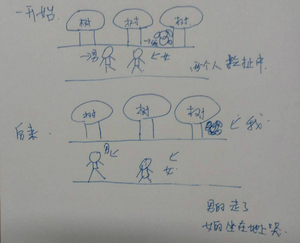 一开始
树 树 树
男 女
两个人拉扯中
树 树 树
后来 我
男 女
男的走了
女的坐在地上哭